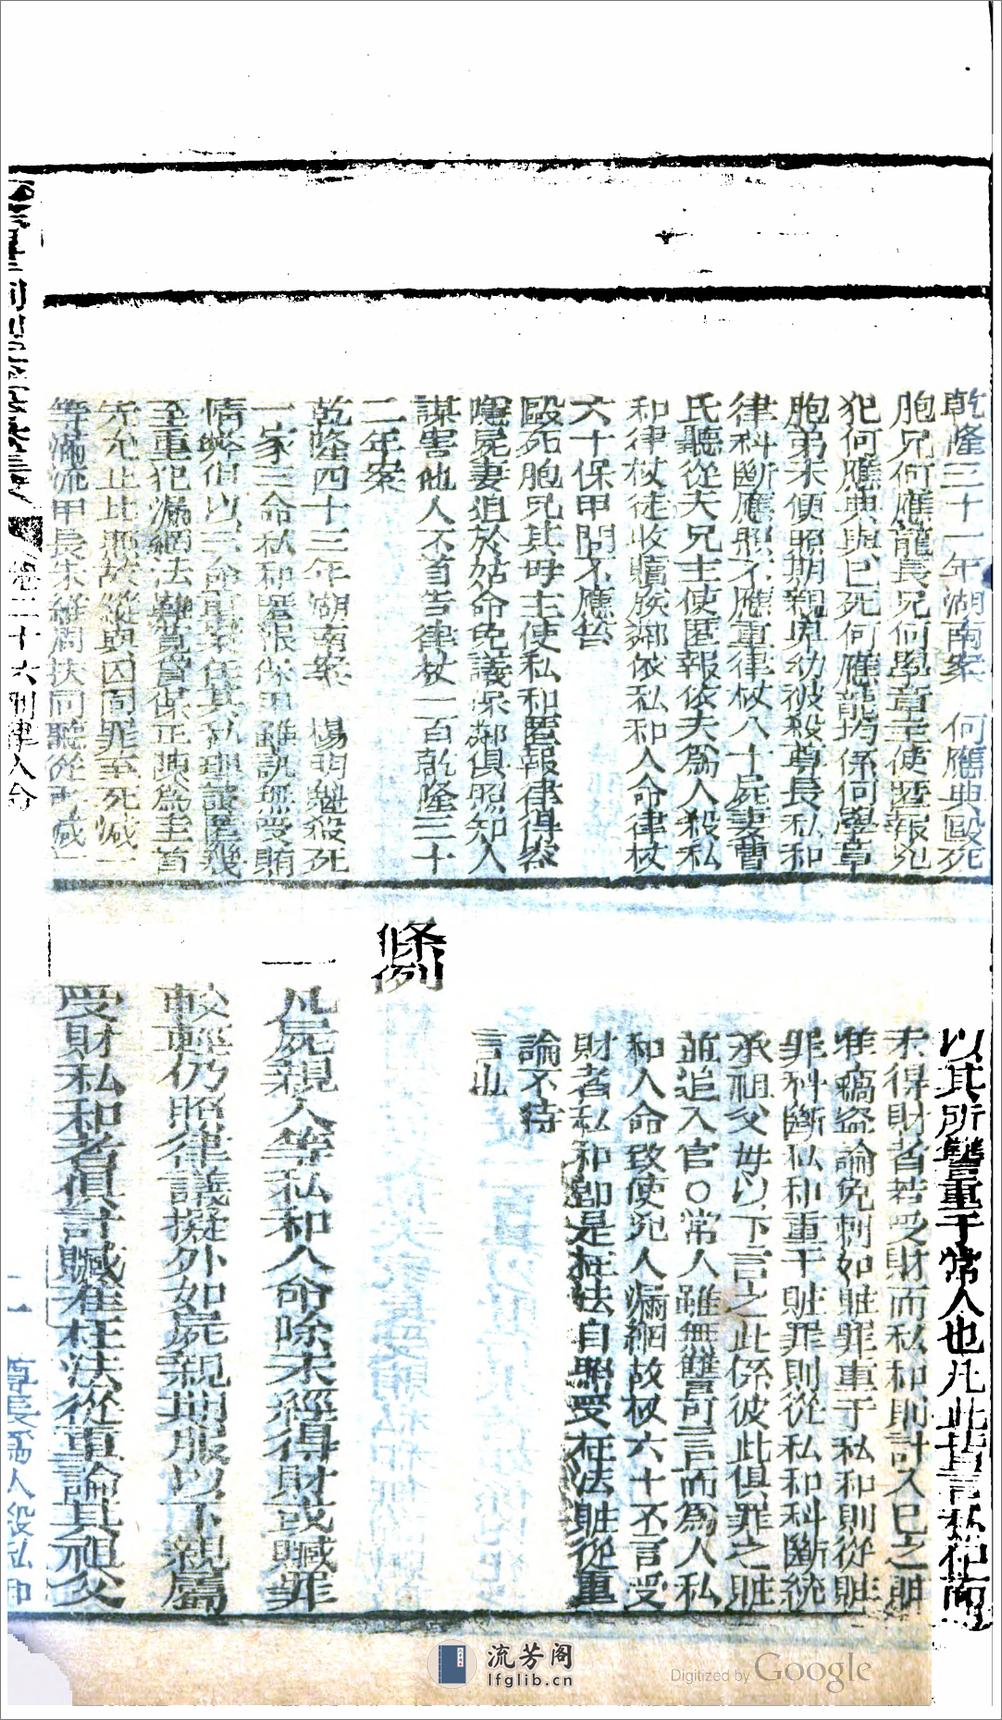 乾隆三十一年湖南案　何應典毆死
胞兄何應龍長兄何學章主使匿報兇
犯何應典與已死何應龍均係何學章
胞弟未便照期親卑幼被殺尊長私和
律科斷應照不應重律杖八十屍妻曹
氏聽從夫兄主使匿報依夫為人殺私
和律杖徒收贖族鄰依私和人命律杖
六十保甲門不應笞
毆死胞兄其母主使私和匿報律得容
隱屍妻迫於姑命免議保鄰俱照知人
謀害他人不首告律杖一百乾隆三十
二年案
乾隆四十三年湖南案　楊明魁殺死
一家三命私和匿
情弊但以三命重案任其私埋諱匿幾
至重犯漏網法難寬貸保正陳為至首
先允止比照故縱與囚同罪至死減一
等滿流甲長朱維周扶同聽從再減一
以其所讐重于常人也凡此皆言私和而
未得財者若受財而私和則計入已之贓
准竊盜論免刺如贓罪重于私和則從贓
罪科斷私和重于贓罪則從私和科斷統
承祖父母以下言之此係彼此俱罪之贓
並追入官○常人雖無讐可言而為人私
和人命致使兇人漏網故杖六十不言受
財者私和即是枉法自照受枉法贓從重
論不待
言也
條例
一凡屍親人等私和人命除未經得財或贓罪
較輕仍照律議擬外如屍親期服以下親屬
受財私和者俱計贓准枉法從重論其祖父
卷二十六刑律人命
二
尊長為人殺私和
流芳阁
lfglib.cn
Digitized by Google